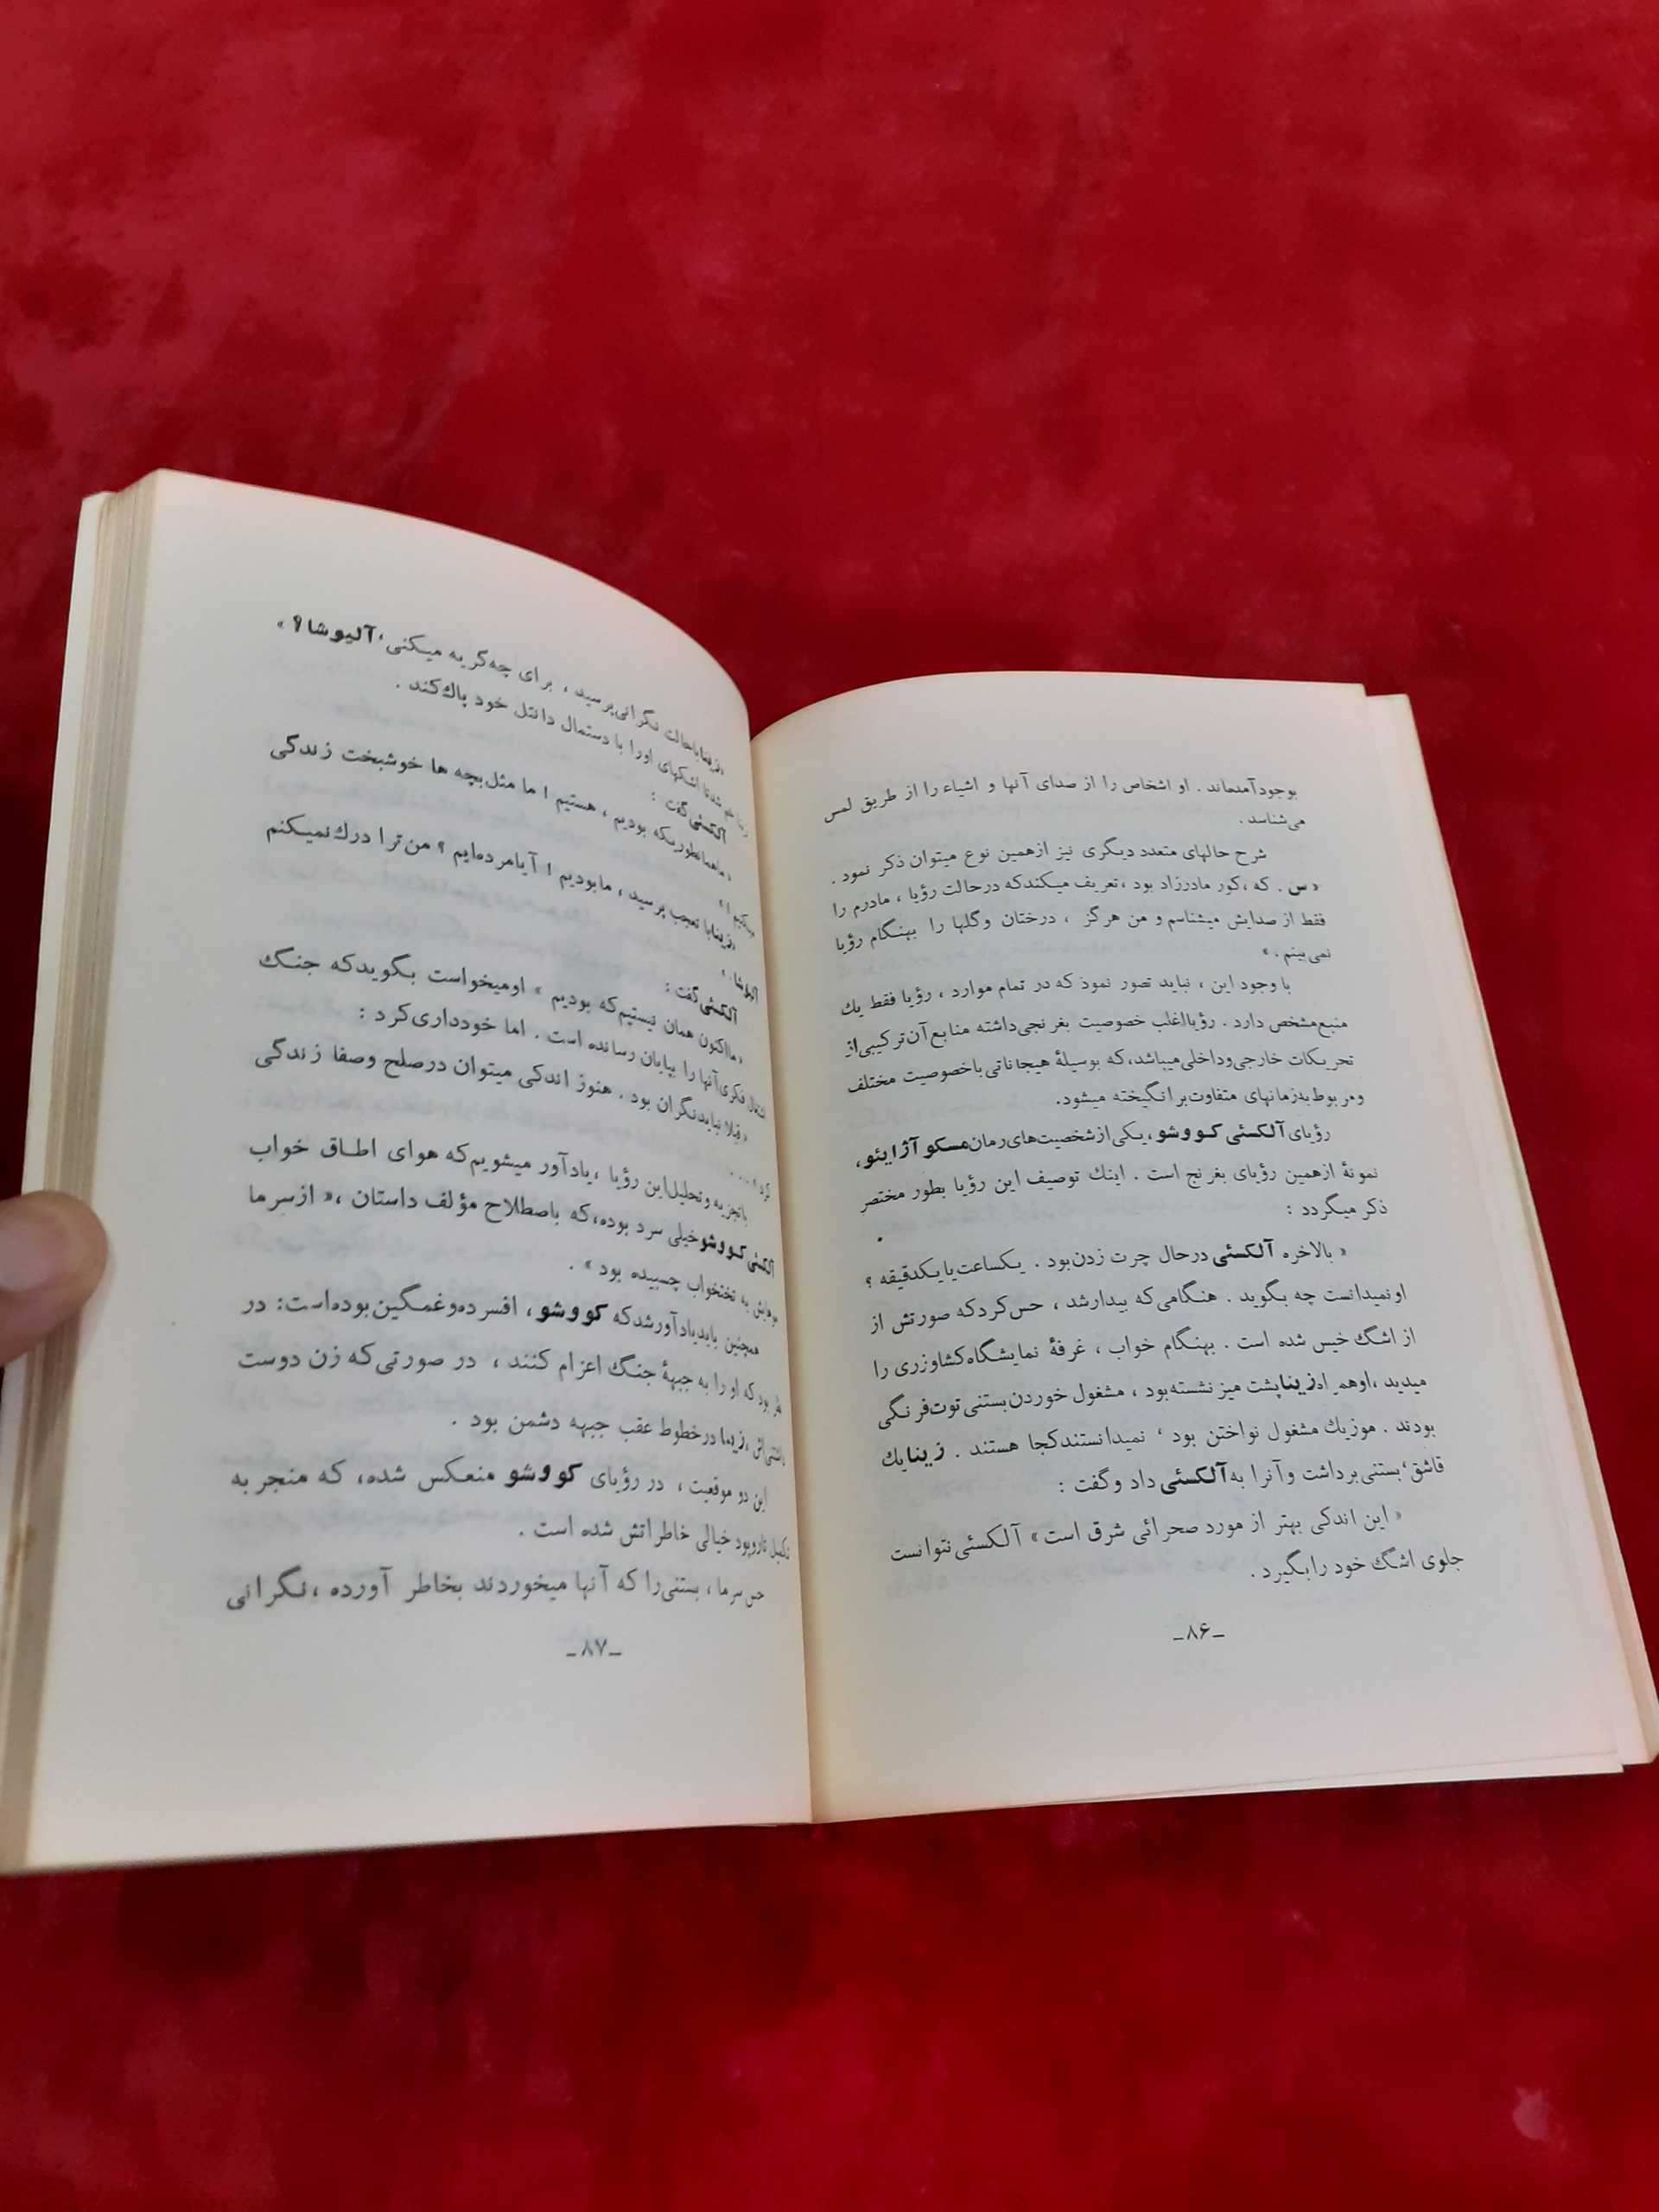 بوجودآمده‌اند . او اشخاص را از صدای آنها و اشیاء را از طریق لمس
می‌شناسد .
شرح حالهای متعدد دیگری نیز ازهمین نوع میتوان ذکر نمود .
«س . که ، کور مادرزاد بود ، تعریف میکندکه درحالت رؤیا ، مادرم را
فقط از صدایش میشناسم و من هرگز ، درختان وگلها را بهنگام رؤیا
نمی‌بینم . »
با وجود این ، نباید تصور نمود که در تمام موارد ، رؤیا فقط یك
منبع‌مشخص دارد . رؤیااغلب خصوصیت بغرنجی‌داشته منابع آن‌ترکیبی‌از
تحریکات خارجی‌وداخلی‌میباشد،که بوسیلهٔ هیجاناتی باخصوصیت مختلف
ومربوط به‌زمانهای متفاوت‌برانگیخته میشود.
رؤیای آلکسئی کووشو ،یکی‌ازشخصیت‌های‌رمان‌مسکو آژایئو،
نمونهٔ ازهمین رؤیای بغرنج است . اینك توصیف این رؤیا بطور مختصر
ذکر میگردد :
« بالاخره آلکسئی درحال چرت زدن‌بود . یکساعت‌یایکدقیقه ؟
اونمیدانست چه بگوید . هنگامی‌که بیدارشد ، حس‌کردکه صورتش از
از اشگ خیس شده است . بهنگام خواب ، غرفهٔ نمایشگاه‌کشاورزی را
میدید ،اوهمراه‌زیناپشت میز نشسته‌بود ، مشغول خوردن‌بستنی توت‌فرنگی
بودند . موزیك مشغول نواختن بود ، نمیدانستندکجا هستند . زینایك
قاشق،بستنی‌برداشت وآنرا به‌آلکسئی داد وگفت :
« این اندکی بهتر از مورد صحرائی شرق است » آلکسئی نتوانست
جلوی اشگ خود رابگیرد .
ـ۸۶ـ
«زیناباحالت نگرانی‌پرسید ، برای چه‌گریه میکنی،آلیوشا؟ »
شدتا اشکهای اورا با دستمال دانتل خود پاك‌کند .
آلکسئی گفت :
«ماهمانطوریکه بودیم ، هستیم ! ما مثل‌بچه ها خوشبخت زندگی
میکنیم ! »
«زیناباتعجب پرسید ، مابودیم ! آیامرده‌ایم ؟ من‌ترا درك‌نمیکنم
آلیوشا. »
آلکسئی گفت :
«مااکنون همان نیستیم‌که بودیم » اومیخواست بگویدکه جنگ
اشتغال فکری‌آنها را بپایان رسانده است . اما خودداری‌کرد :
نبایدنگران بود . هنوز اندکی میتوان درصلح وصفا زندگی
کرد ....
باتجزیه وتحلیل‌این رؤیا ،یادآور میشویم‌که هوای اطاق خواب
آلکسئی کووشوخیلی سرد بوده،که باصطلاح مؤلف داستان ،« ازسرما
موهایش به تختخواب چسبیده بود » .
همچنین بایدیادآورشدکه کووشو ، افسرده‌وغمگین‌بوده‌است: در
بود که او را به جبههٔ جنگ اعزام کنند ، در صورتی‌که زن دوست
داشتنی‌اش ،زینا درخطوط عقب جبهه دشمن بود .
این دو موقعیت ، در رؤیای کووشو منعکس شده، که منجر به
تکمیل تاروپود خیالی خاطراتش شده است .
حس سرما ، بستنی‌را که آنها میخوردند بخاطر آورده ،نگرانی
ـ۸۷ـ